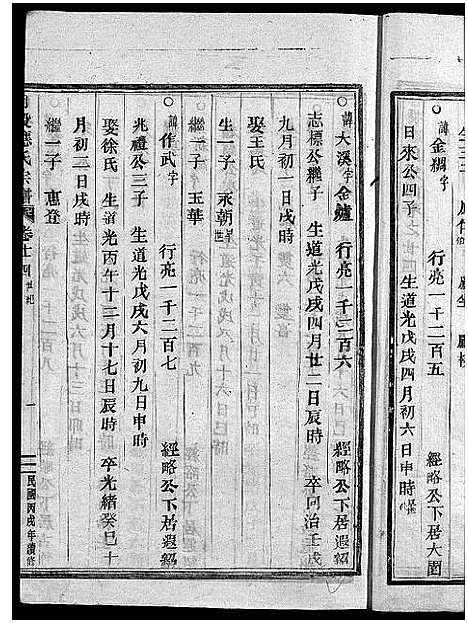 諱金㵎字 行亮一千二百五 經略公下居大園
日來公四子 生道光戊戌四月初六日申時
諱大溪字金鑪 行亮一千二百六 經略公下居遐紹
志標公繼子 生道光戊戌四月廿二日辰時 卒同治壬戌
九月初一日戌時
娶王氏
生一子 永朝
繼一子 玉華
諱作武字 行亮一千二百七 經略公下居遐紹
兆禮公三子 生道光戊戌六月初九日申時
娶徐氏 生道光丙午十二月十七日辰時 卒光緒癸巳十
月初二日戌時
繼一子 惠登
氏宗譜 卷廿四 世紀 一 民國丙戌年續修